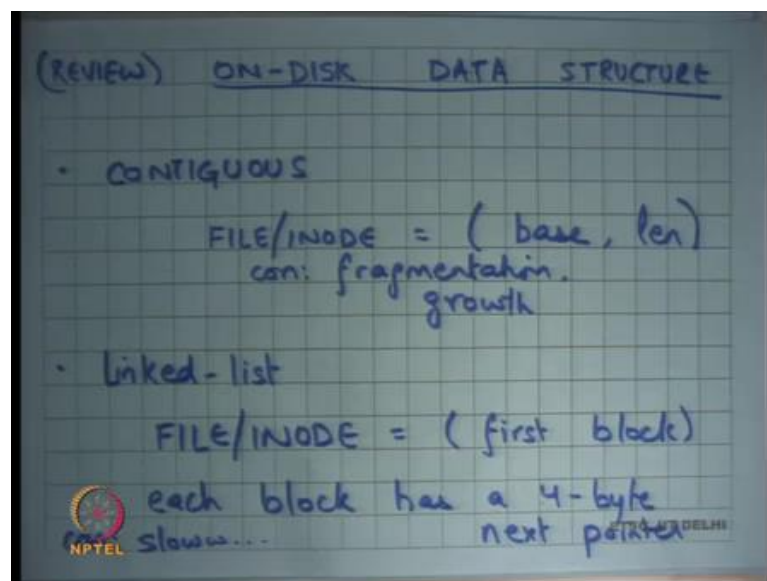 (REVIEW) ON-DISK DATA STRUCTURE
• CONTIGUOUS
FILE/INODE = ( base, len)
con: fragmentation.
growth
• Linked-list
FILE/INODE = ( first block)
each block has a 4-byte
sloww... next pointer
NPTEL
DELHI